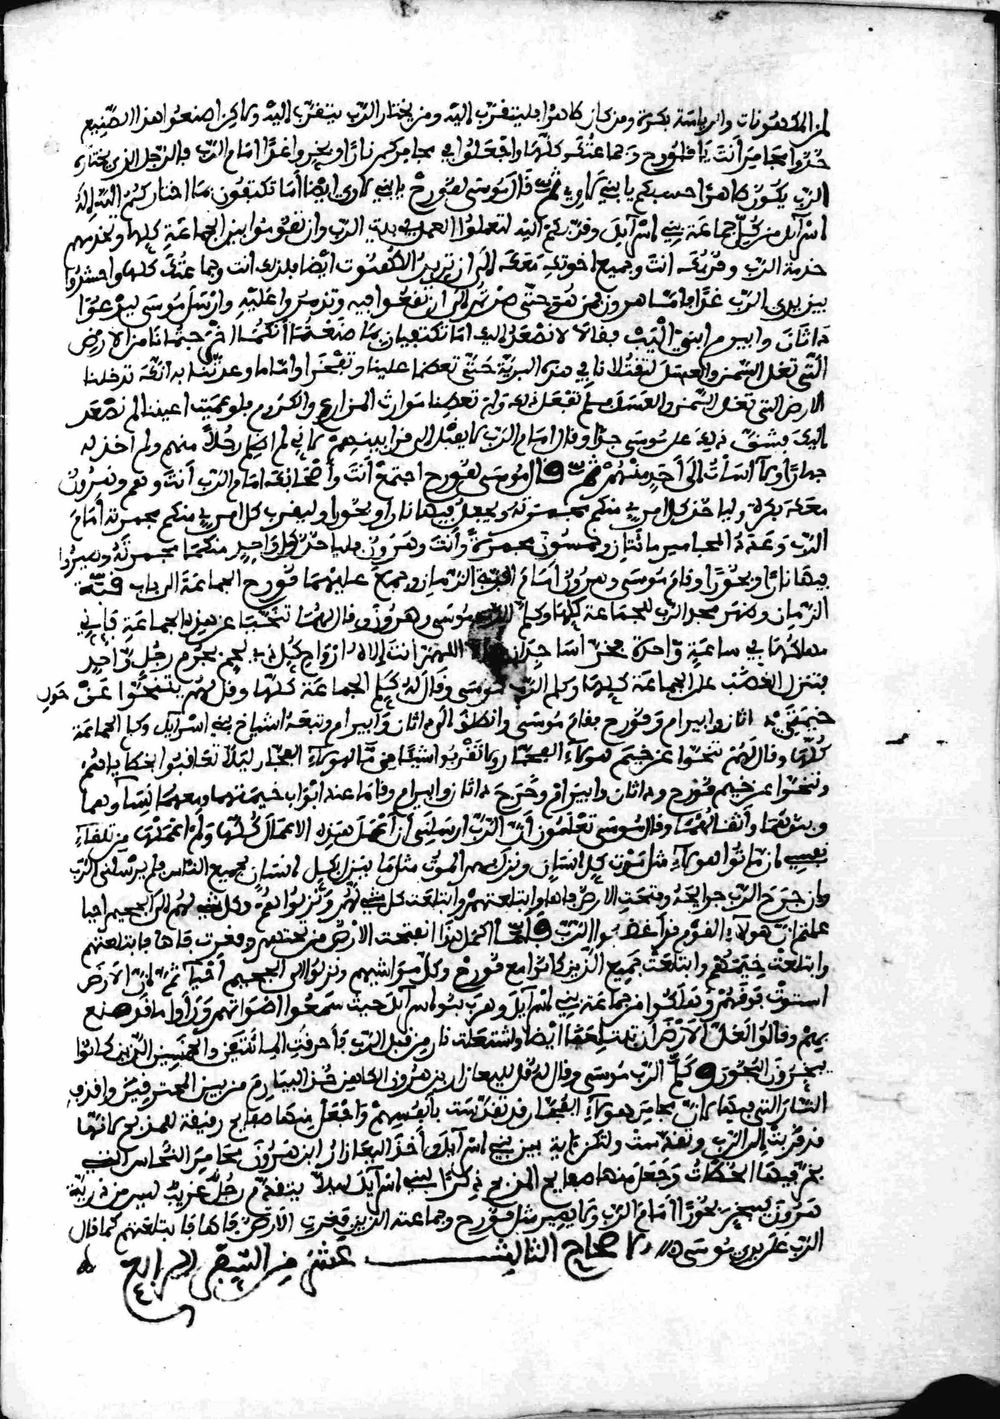 من الكهنونات والرياسة بكرة ومن كان كاهنا فليتقرب اليه ومن يختار الرب يتقرب اليه ولاكن اصنعوا هذا الصنيع
خذوا مجامر أنت يا قورح وجماعتك كلها واجعلوا في مجامركم نارا وبخروا غدا امام الرب فالرجل الذي يختاره
الرب يكون كاهنا حسبكم يا بني لاوي ثم قال موسى لقورح يا بني لاوي ايضا أما تكتفون بما اختاركم اليه إله
اسرآيل من كل جماعة بني اسرآيل وقربكم اليه لتعملوا العمل في بيت الرب وان تقوموا بين الجماعة كلها وتخدمهم
خدمة الرب وقربك انت وجميع اخوتك معك الى ان تريد الكهنوت ايضا فلذلك انت وجماعتك كلها واحشروا
بين يدي الرب غدا
داثان وابيرم ابني الياب فقالا لا نصعد إليه اما تكتفيان بما صنعتما انكما اخرجتمانا من الارض
التي تغل السمن والعسل لتقتلانا في هذه البرية حتى تعظما علينا وتفتخرا
الارض التي تغل السمن والعسل فلم تفعل ذلك ولم تعطنا موارث المزارع والكروم فلو عميت اعيننا لم نصعد
اليك فشق ذلك على موسى جدا وقال امام الرب لا يقبل الى قرابينهم لاني لم اظلم رجلا منهم ولم اخذ له
حمارا ولا أسأت إلى أحد منهم ثم قال موسى لقورح اجتمع أنت وأصحابك امام الرب أنت وهم وهرون
معك بكرة ولياخذ كل امري منكم مجمرته ويجعل فيها نارا وبخورا وليقرب كل امري منكم مجمرته أمام
الرب وعدة المجامير مائتان وخمسون مجمرة وأنت وهرون فلياخذ كل واحد منكما مجمرته وصيروا
فيها نارا وبخورا وقام موسى وهرون امام قبة الزمان وجمع عليهما قورح الجماعة الى باب قبة
الزمان وظهر مجد الرب للجماعة كلها وكلم الرب موسى وهرون وقال لهما تنحيا عن هذه الجماعة فإني
مهلكها في ساعة واحدة فخرا ساجدان اللهم انت إلاه ارواح كل ذي لحم بجرم رجل واحد
ينزل الغضب على الجماعة كلها وكلم الرب موسى وقال له كلم الجماعة كلها وقل لهم يتنحوا عن حول
خيمتي داثان وابيرام وقورح فقام موسى وانطلق الى داثان وابيرام وتبعه اشياخ بني اسرآيل وكلم الجماعة
كلها وقال لهم تنحوا عن خيم هولاء الفجار ولا تقربوا شيئا من مال هولاء الفجار ليلا تعاقبوا بخطاياهم
وتنحوا عن خيم قورح وداثان وابيرام وخرج داثان وابيرام وقاما عند ابواب خيمتهما ومعهما نساؤهما
وبنوهما وأثقالهما وقال موسى تعلمون أن الرب ارسلني أن أعمل هذه الاعمال كلها ولم اعملها من تلقاء
نفسي ان ماتوا هولاء مثل موت كل انسان ونزل بهم الموت مثل ما ينزل بكل انسان جميع الناس فلم يرسلني الرب
وان جرح الرب جرايحه وفتحت الارض فاها وابتلعتهم وابتلعت كل شيء لهم ونزلوا هم وكل شيء لهم الى الجحيم احيا
علمتم ان هولاء القوم قد أغضبوا الرب وكما اكمل هذا انفتحت الارض من تحتهم وفغرت فاها فابتلعتهم
وابتلعت خيمتهم وابتلعت جميع الذين كانوا مع قورح وكل مواشيهم ونزلوا الى الجحيم أحياء ثم ان الارض
استوت فوقهم وهلكوا من جماعة بني اسرآيل وهرب بنو اسرآيل حيث سمعوا اصواتهم ورأوا ما قد صنع
بهم وقالوا لعل الارض أن تبتلعنا ايضا واشتعلت نار من قبل الرب فأحرقت المائتين والخمسين الذين كانوا
يبخرون البخور وكلم الرب موسى وقال له قل لليعازار ابن هرون الكاهن خذ المجامر من بين المحترقين واقذف
النار التي فيها لان مجامر هولاء الفجار قد تقدست بأنفسهم واجعل منها صفايح رقيقة للمذبح لانها
قد قربت إلى الرب وتقدست ولتكن اية بين بني اسرآيل وأخذ اليعازار ابن هرون مجامر النحاس التي
بخر فيها الخطاة وجعل منها صفايح المذبح ذكرا لبني اسرآيل ليلا يتقدم رجل غريب ليس من ذرية
هرون ليبخر بخورا أمام الرب ولا يصير مثل قورح وجماعته الذين فغرت الارض فاها فابتلعتهم كما قال
الرب على يدي موسى الاصحاح الثالث عشر من السفر الرابع